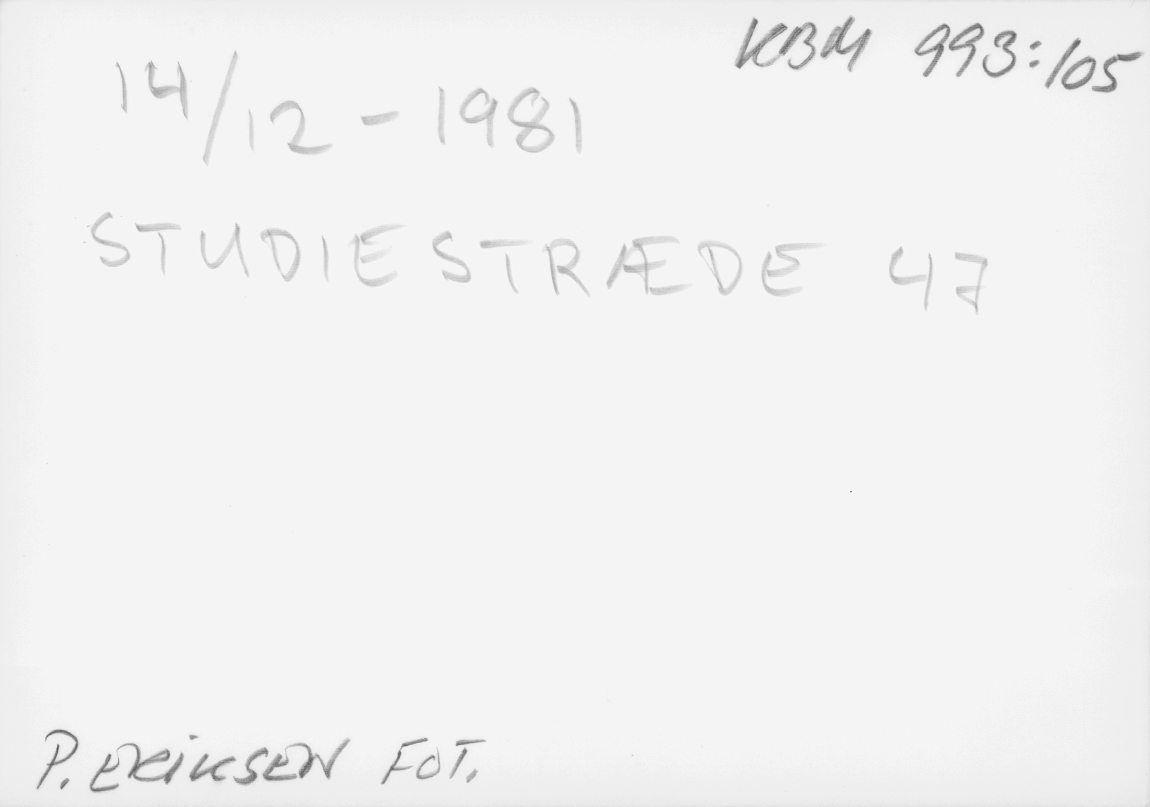 KBM 993:105
14/12-1981
STUDIESTRÆDE 47
P. ERIKSEN FOT.